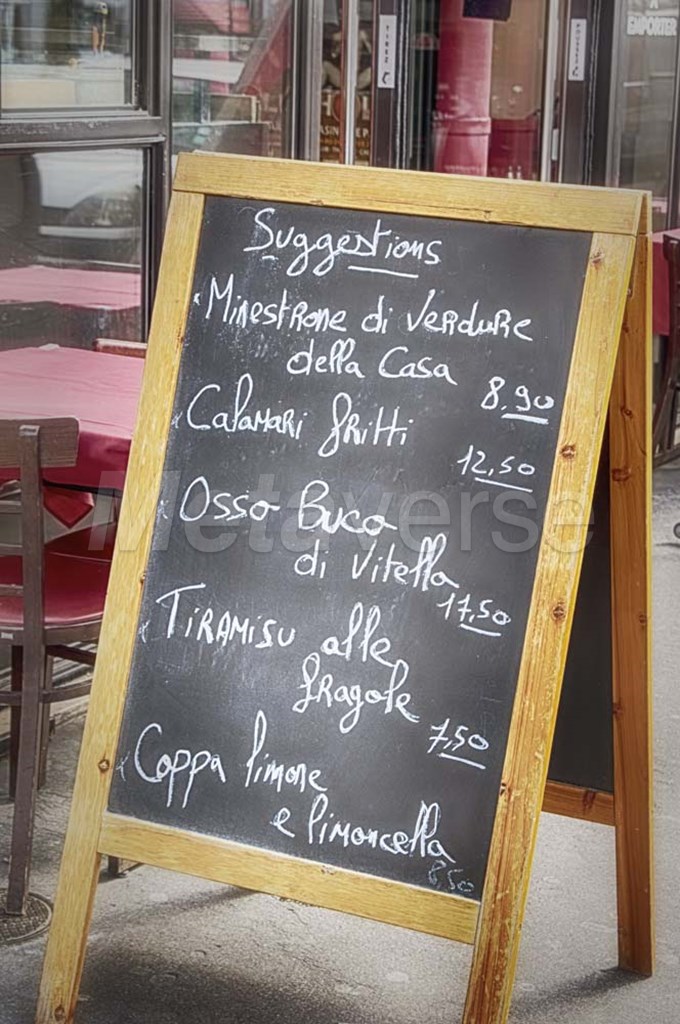 TIREZ
POUSSEZ
A
EMPORTER
Suggestions
Minestrone di Verdure
della Casa
8,90
Calamari fritti
12,50
Osso Buco
di Vitella
17,50
Tiramisu alle
fragole
7,50
Coppa limone
e limoncella
8,50
Metaverse